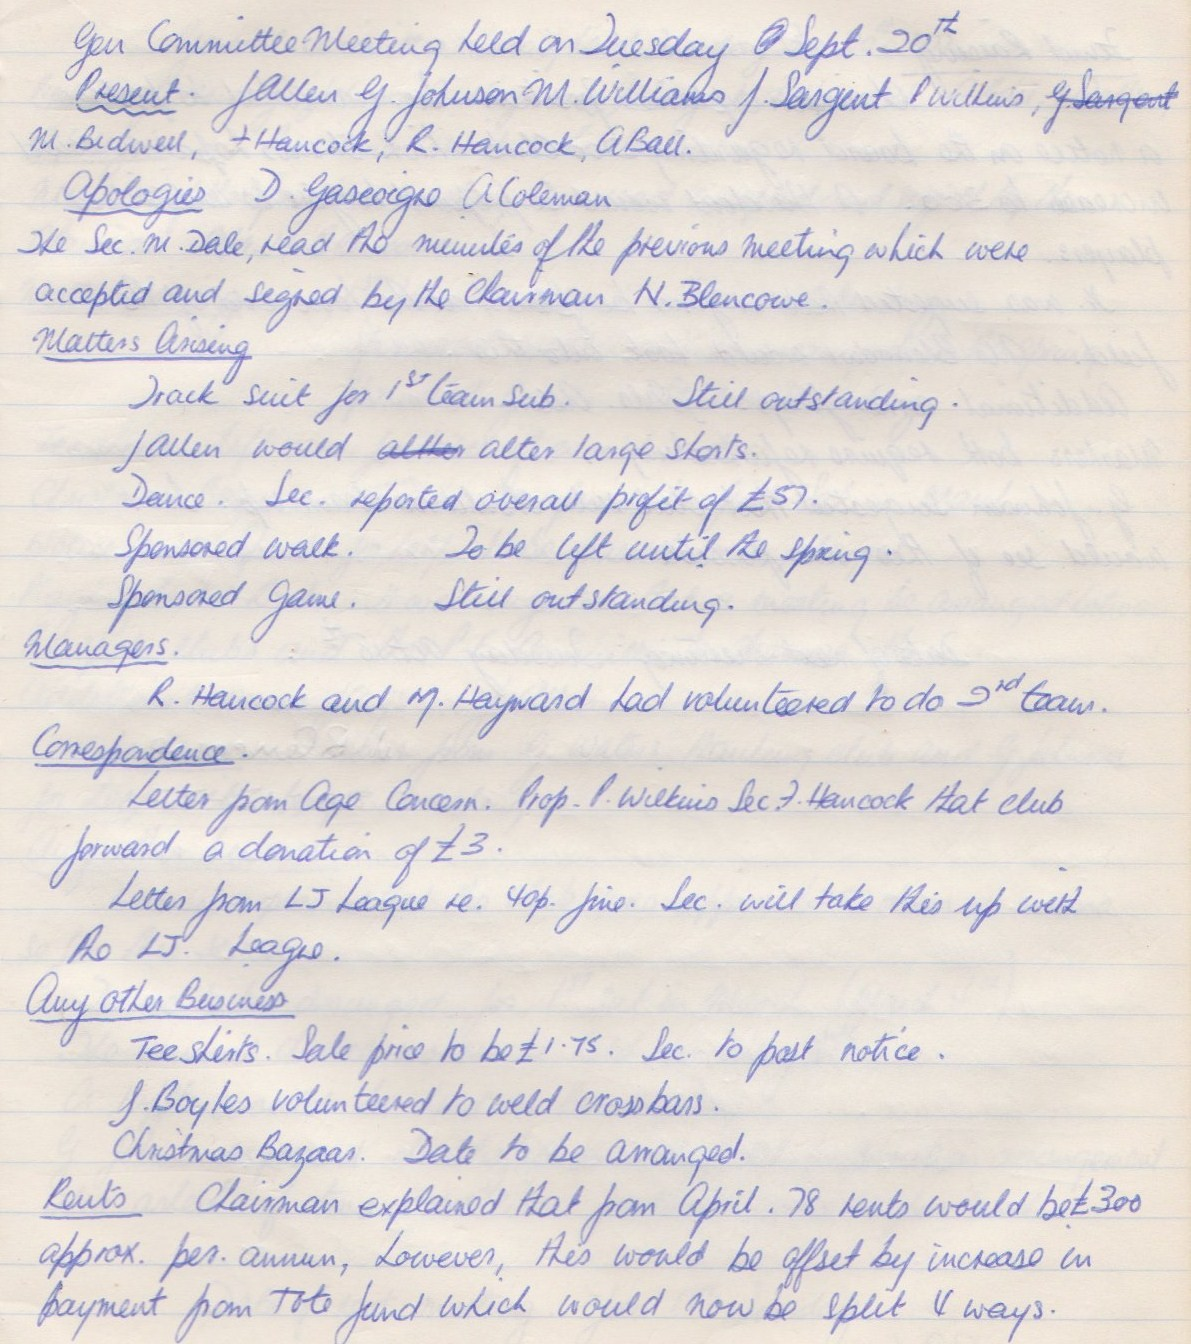 Gen Committee Meeting held on Tuesday Sept. 20th
Present. J Allen G. Johnson M. Williams J. Sargent P Wilkins, G Sargent
M. Bidwell, F Hancock, R. Hancock, A Ball.
Apologies D Gascoigne A Coleman
The Sec. M. Dale, read the minutes of the previous meeting which were
accepted and signed by the Chairman N. Blencowe.
Matters Arising
Track suit for 1st team sub. Still outstanding.
J Allen would alter large shorts.
Dance. Sec. reported overall profit of £57.
Sponsored walk. To be left until the spring.
Sponsored Game. Still outstanding.
Managers.
R. Hancock and M. Hayward had volunteered to do 3rd team.
Correspondence.
Letter from Age Concern. Prop. P. Wilkins Sec. F. Hancock that club
forward a donation of £3.
Letter from LJ League re. 40p. fine. Sec. will take this up with
the LJ. League.
Any other Business
Tee shirts. Sale price to be £1.75. Sec. to post notice.
J. Boyles volunteered to weld crossbars.
Christmas Bazaar. Date to be arranged.
Rents Chairman explained that from April. 78 rents would be £300
approx. per. annum, however, this would be offset by increase in
payment from Tote fund which would now be split 4 ways.